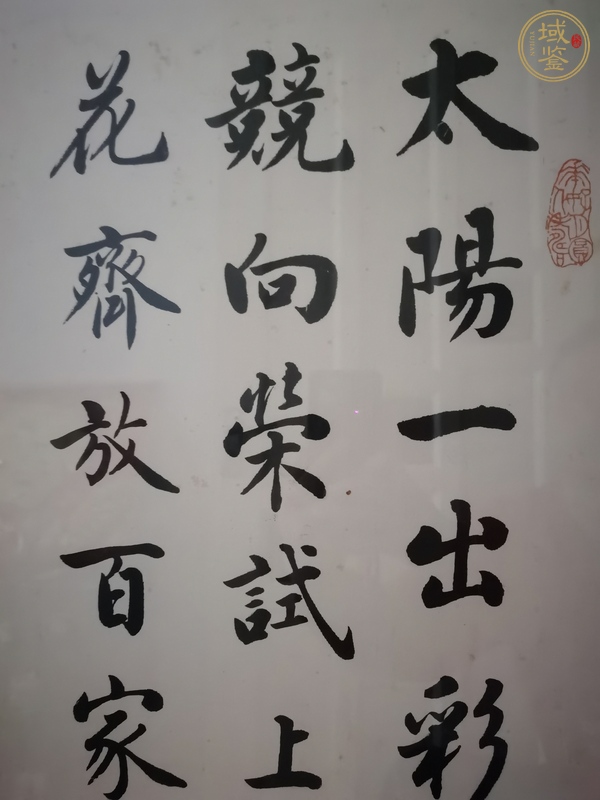 太陽一出彩
競向榮試上
花齊放百家
域鉴